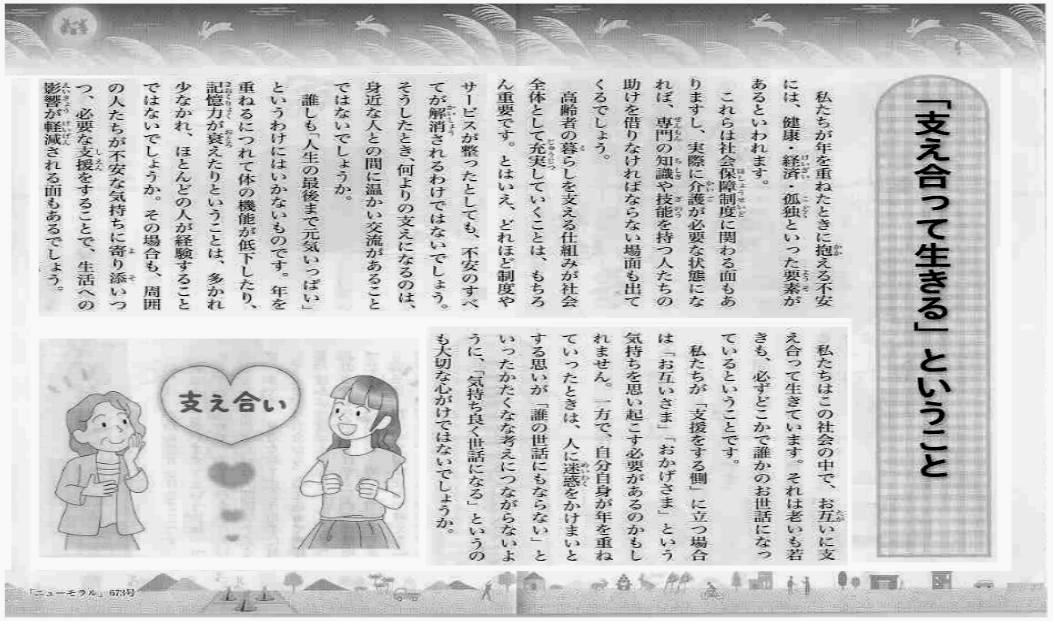 「支え合って生きる」ということ
私たちが年を重ねたときに抱える不安
には、健康・経済・孤独といった要素が
あるといわれます。
これらは社会保障制度に関わる面もあ
りますし、実際に介護が必要な状態にな
れば、専門の知識や技能を持つ人たちの
助けを借りなければならない場面も出て
くるでしょう。
高齢者の暮らしを支える仕組みが社会
全体として充実していくことは、もちろ
ん重要です。とはいえ、どれほど制度や
サービスが整ったとしても、不安のすべ
てが解消されるわけではないでしょう。
そうしたとき、何よりの支えになるのは、
身近な人との間に温かい交流があること
ではないでしょうか。
誰しも「人生の最後まで元気いっぱい」
というわけにはいかないものです。年を
重ねるにつれて体の機能が低下したり、
記憶力が衰えたりということは、多かれ
少なかれ、ほとんどの人が経験すること
ではないでしょうか。その場合も、周囲
の人たちが不安な気持ちに寄り添いつ
つ、必要な支援をすることで、生活への
影響が軽減される面もあるでしょう。
私たちはこの社会の中で、お互いに支
え合って生きています。それは老いも若
きも、必ずどこかで誰かのお世話になっ
ているということです。
私たちが「支援をする側」に立つ場合
は「お互いさま」「おかげさま」という
気持ちを思い起こす必要があるのかもし
れません。一方で、自分自身が年を重ね
ていったときは、人に迷惑をかけまいと
する思いが「誰の世話にもならない」と
いったかたくなな考えにつながらないよ
うに、「気持ち良く世話になる」というの
も大切な心がけではないでしょうか。
支え合い
「ニューモラル」673号